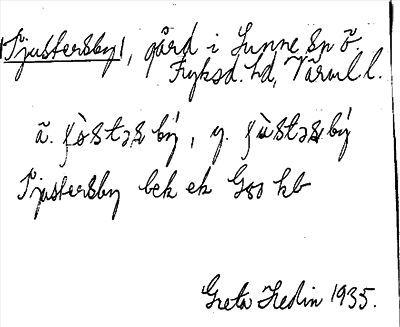 Tjustersby, gård i Sunne sn Ö.
Fryksd. hd, Värml l.
ä. ʃòstəsbý, y. ʃùstəsbý
Tjustersby bek ek G80 kb
Greta Hedin 1935.